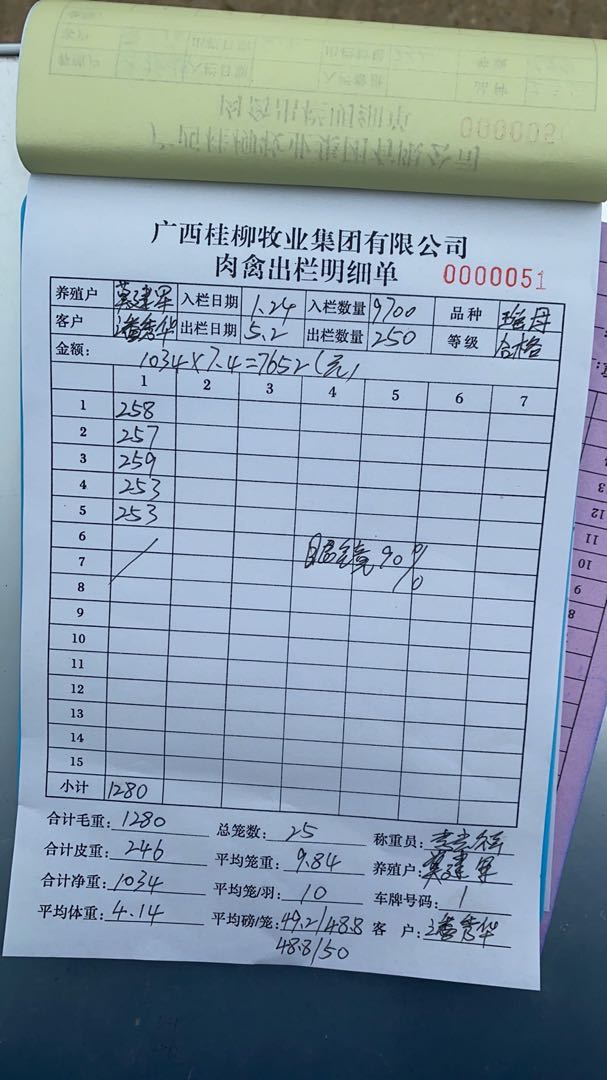 0000051
广西桂柳牧业集团有限公司
肉禽出栏明细单 0000051
养殖户 莫建军 入栏日期 1.24 入栏数量 9700 品种 瑶母
客户 潘秀华 出栏日期 5.2 出栏数量 250 等级 合格
金额: 1034×7.4=7652(元)
1 2 3 4 5 6 7
1 258
2 257
3 259
4 253
5 253
6
7 眼镜90%
8
9
10
11
12
13
14
15
小计 1280
合计毛重: 1280 总笼数: 25 称重员:
合计皮重: 246 平均笼重: 9.84 养殖户: 莫建军
合计净重: 1034 平均笼/羽: 10 车牌号码: 1
平均体重: 4.14 平均磅/笼: 49.2/48.8 客户: 潘秀华
48.8/50